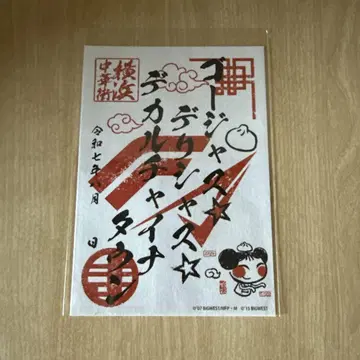 ゴージャス☆
デリシャス☆
デカルチャイナ
タウン
横浜
中華街
令和七年 月 日